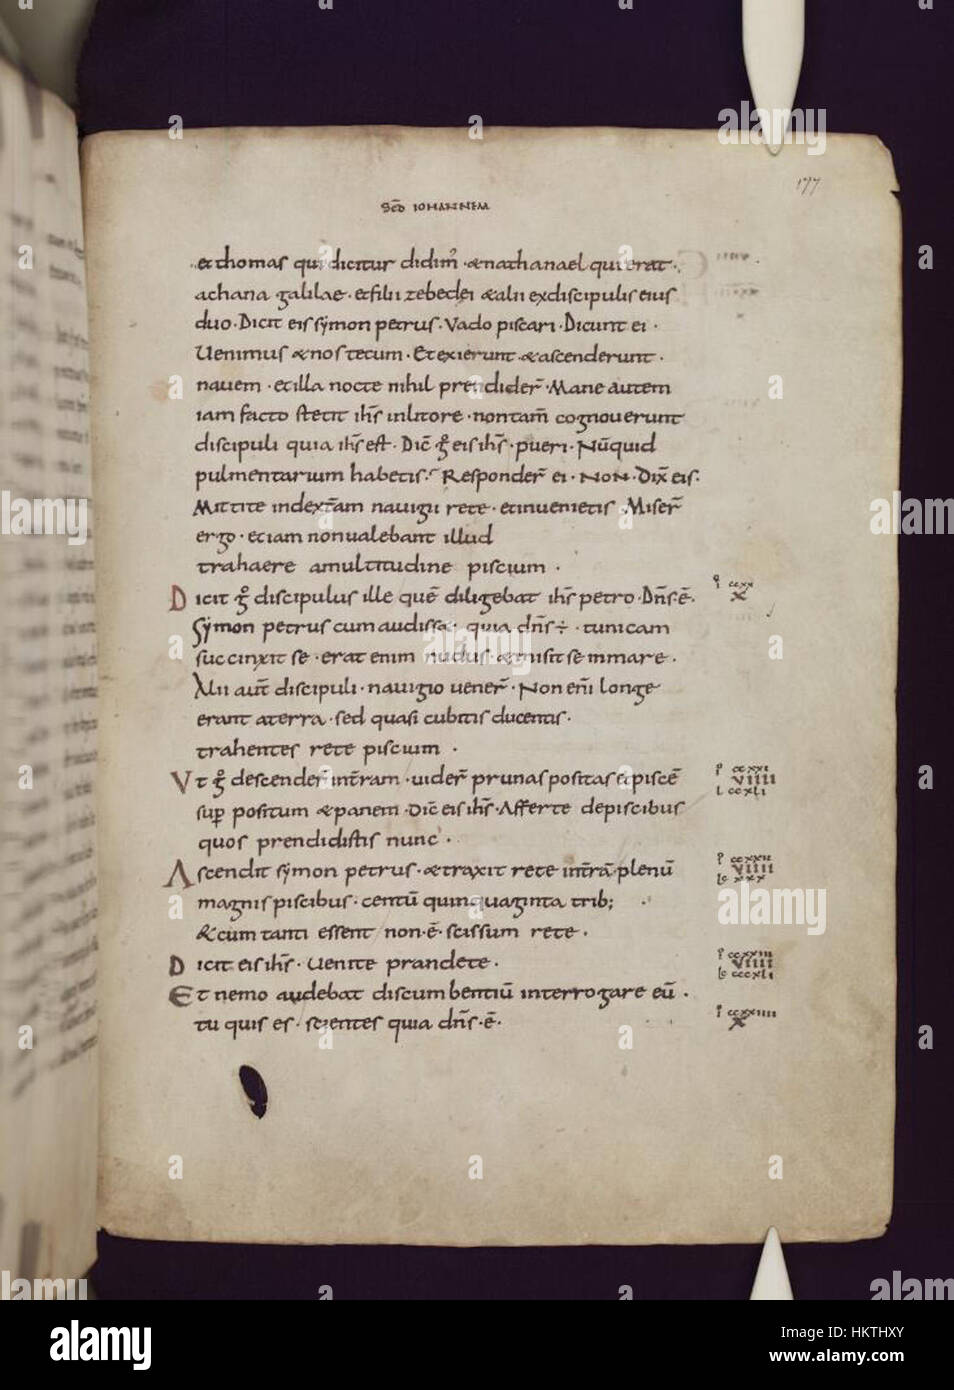 177
SCD IOHANNEM
et thomas qui dicitur didim' · & nathanael qui erat ·
achana galilae · et filii zebedei & alii exdiscipulis eius
duo · Dicit eis symon petrus · Vado piscari · Dicunt ei ·
Uenimus & nos tecum · Et exierunt & ascenderunt ·
nauem · et illa nocte nihil prendider̄ · Mane autem
iam facto stetit ih̄s inlitore · nontam̄ cognouerunt
discipuli quia ih̄s est · Dic̄ g̊ eis ih̄s · pueri · Nūquid
pulmentarium habetis · Responder̄ ei · NON · Dix̄ eis ·
Mittite indext̄am nauigii rete · et inuenietis · Miser̄
ergo · et iam nonualebant illud
trahaere amultitudine piscium ·
Dicit g̊ discipulus ille quē diligebat ih̄s petro · Dn̄s · ē ·
p ccxx
x
Symon petrus cum audiss& · quia dn̄s ÷ · tunicam
succinxit se · erat enim nudus · & misit se inmare ·
Alii aut̄ discipuli · nauigio uener̄ · Non eni̅ longe
erant aterra · sed quasi cubitis ducentis ·
trahentes rete piscium ·
Vt g̊ descender̄ int̄ram · uider̄ prunas positas & piscē
p ccxxi
viiii
l cccxli
sup̄ positum & panem · Dic̄ eis ih̄s · Afferte depiscibus
quos prendidistis nunc ·
Ascendit symon petrus · & traxit rete int̄rā plenū
p ccxxii
viiii
lc xxx
magnis piscibus · centū quinquaginta trib;
& cum tanti essent non · ē · scissum rete ·
Dicit eis ih̄s · Uenite prandete ·
p ccxxiii
viiii
lc cccxli
Et nemo audebat discumbentiū interrogare eū ·
tu quis es · scientes quia dn̄s · ē ·
p ccxxiiii
x
alamy
Image ID: HKTHXY
www.alamy.com